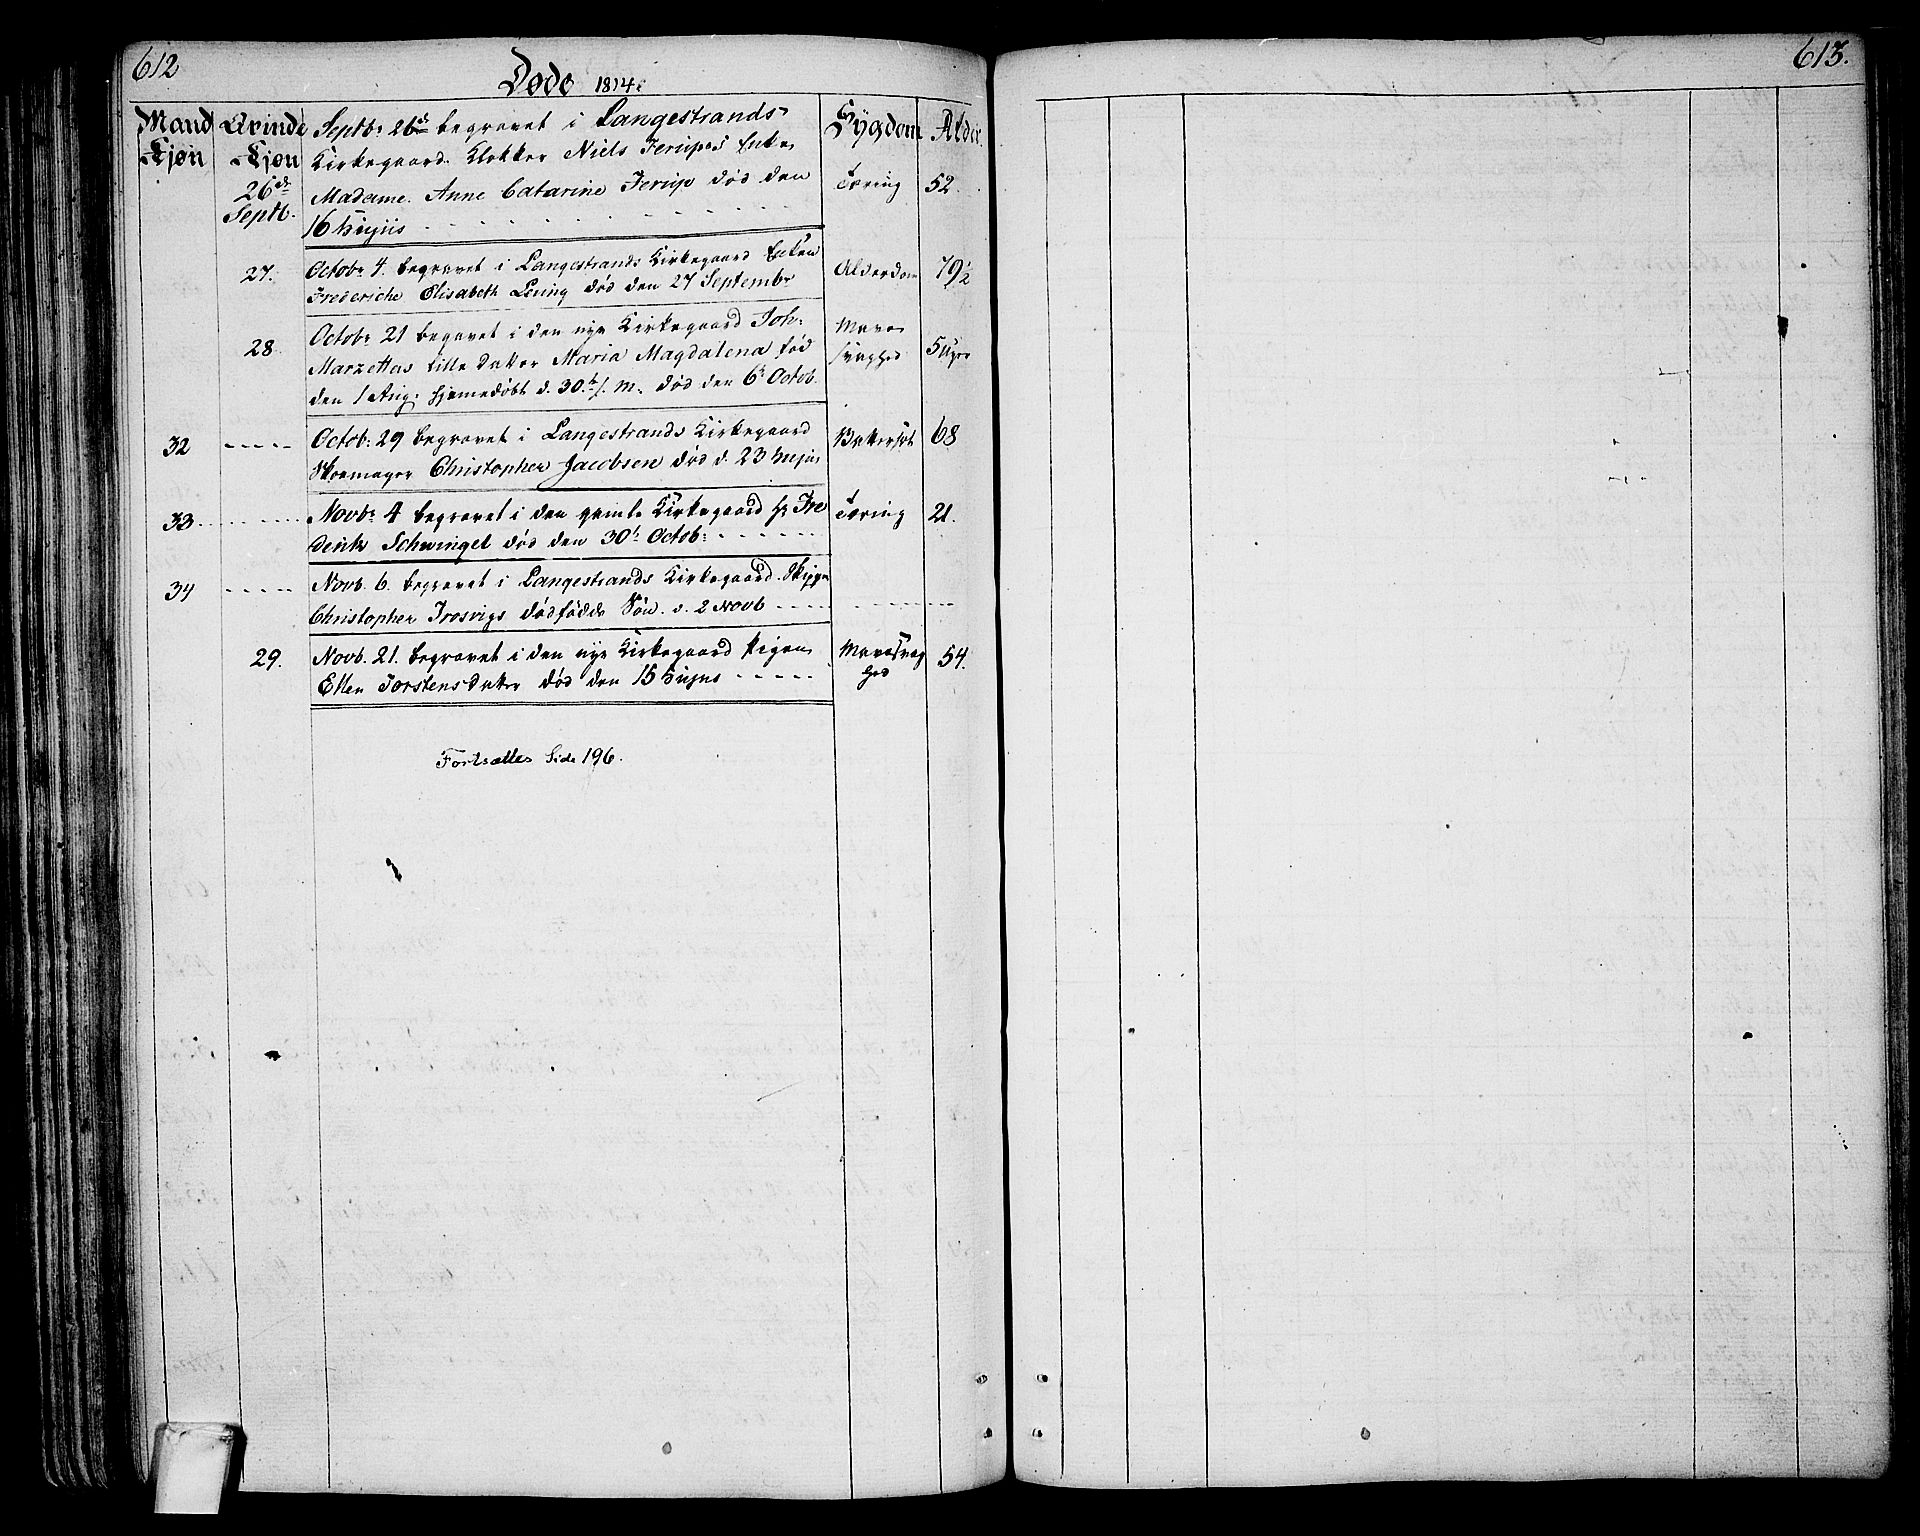 612
Døde 1814.
Mand Kjøn
Qvinde Kjøn
Sygdom
Alder.
26de Septb.
Septbr 26de begravet i Langestrands
Kirkegaard. Klokker Niels Jerupes Enke
Madame. Anne Catarine Jerup død den
16 hujus
Tæring 52.
27. Octobr 4. begravet i Langestrands Kirkegaard Enken
Frederiche Elisabeth død den 27 Septembr
Alderdom 79½
28. Octobr 21 begravet i den nye Kirkegaard Joh:
Marzettas lille Datter Maria Magdalena fød
den 1 Aug: hjemedøbt d. 30. s. M. død den 6t Octob.
Mave syghed 5 Uger
32 Octob: 29 begravet i Langestrands Kirkegaard
Skoemager Christopher Jacobsen død d. 23 hujus
68
33 Novbr 4 begravet i den gamle Kirkegaard Hr Fre
derik Schwingel død den 30t Octob:
Tæring 21.
34 Novb. 6. begravet i Langestrands Kirkegaard.
Christopher Trosvigs dødfødde Søn. d. 2 Novb
29. Novb. 21. begravet i den nye Kirkegaard Pigen
Ellen Torstensdatter død den 15 hujus
Mavesyg hed 54.
Fortsættes Side 196.
613.